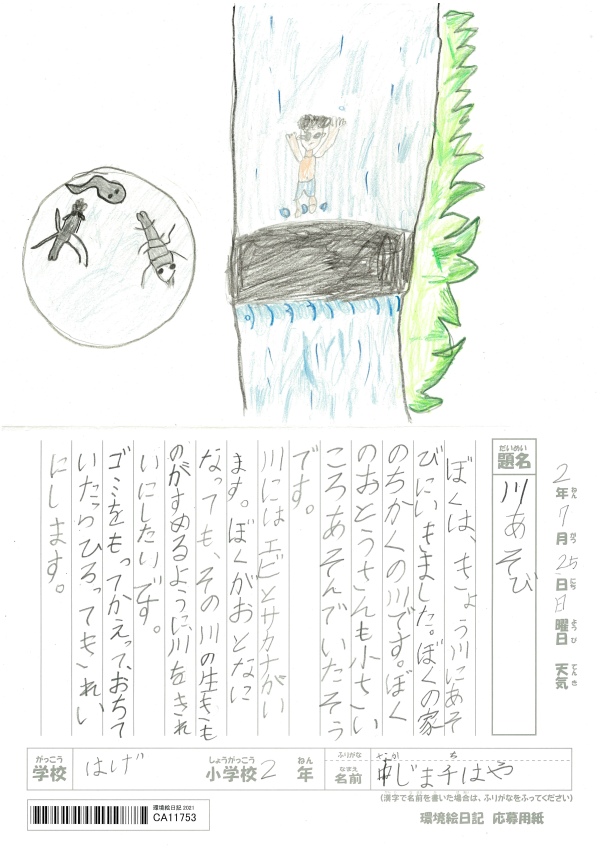 2年7月25日日曜日 天気
ねん がつ にち ようび てんき
だいめい
題名
川あそび
ぼくは、きょう川にあそ
びにいきました。ぼくの家
のちかくの川です。ぼく
のおとうさんも小さい
ころあそんでいたそう
です。
川にはエビとサカナがい
ます。ぼくがおとなに
なっても、その川の生きも
のがすめるように川をきれ
いにしたいです。
ゴミをもってかえって、おちて
いたらひろってもきれい
にします。
がっこう しょうがっこう ねん
学校 はげ 小学校 2 年
ふりがな なか ち
なまえ
名前 中じま千はや
(漢字で名前を書いた場合は、ふりがなをふってください)
環境絵日記 2021
CA11753
環境絵日記 応募用紙